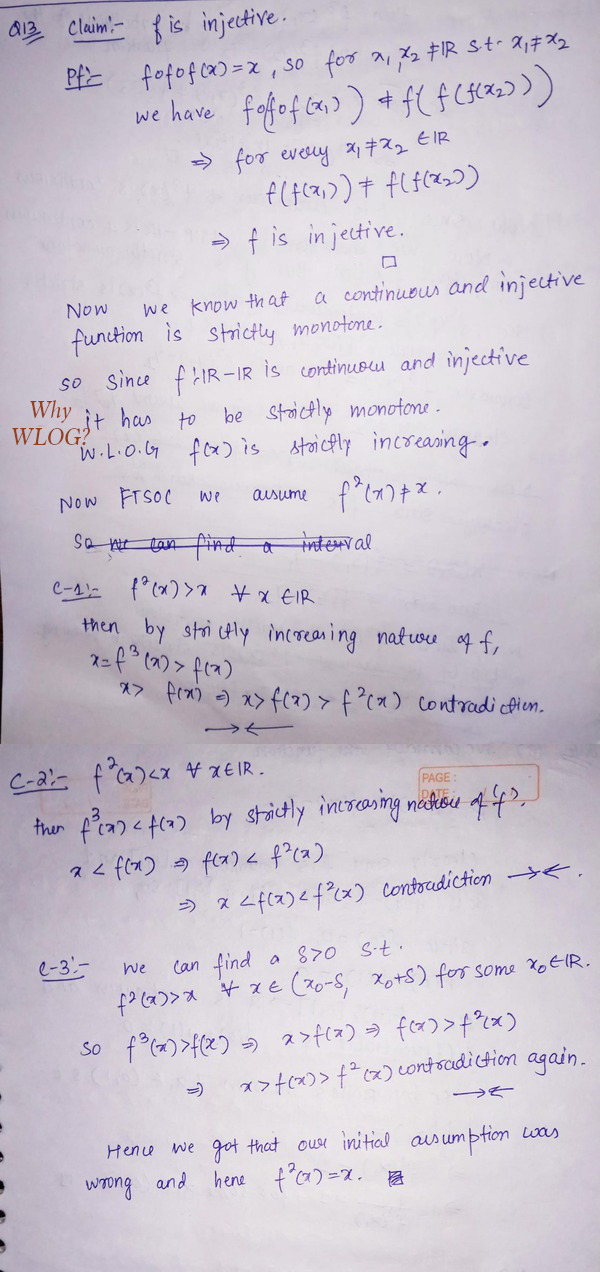 Q13 Claim:- f is injective.
Pf:- fofof(x)=x, so for x₁,x₂ ≠ IR s.t. x₁≠x₂
we have fo(fof(x₁)) ≠ f(f(f(x₂)))
⇒ for every x₁≠x₂ ∈IR
f(f(x₁)) ≠ f(f(x₂))
⇒ f is injective.
□
Now we know that a continuous and injective
function is strictly monotone.
so since f:IR-IR is continuous and injective
Why
WLOG?
it has to be strictly monotone.
W.L.O.G f(x) is strictly increasing.
Now FTSOC we assume f²(x)≠x.
So we can find a interval
C-1:- f²(x)>x ∀ x∈IR
then by strictly increasing nature of f,
x=f³(x)>f(x)
x> f(x) ⇒ x>f(x)>f²(x) contradiction.
→←
C-2:- f²(x)<x ∀ x∈IR.
PAGE:
DATE:
then f³(x)<f(x) by strictly increasing nature of 'f'.
x<f(x) ⇒ f(x)< f²(x)
⇒ x<f(x)<f²(x) contradiction →←.
C-3:- we can find a δ>0 s.t.
f²(x)>x ∀ x∈(x₀-δ, x₀+δ) for some x₀∈IR.
so f³(x)>f(x) ⇒ x>f(x) ⇒ f(x)>f²(x)
⇒ x>f(x)>f²(x) contradiction again.
→←
Hence we got that our initial assumption was
wrong and hene f²(x)=x.